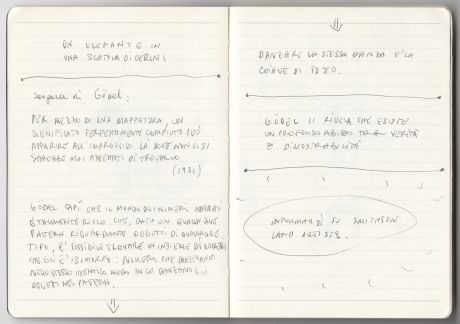 UN ELEFANTE IN
UNA SCATOLA DI CERINI
scoperta di Gödel:
PER MEZZO DI UNA MAPPATURA, UN
SIGNIFICATO PERFETTAMENTE COMPIUTO PUÒ
APPARIRE ALL'IMPROVVISO LÀ DOVE NON CI SI
SAREBBE MAI ASPETTATI DI TROVARLO
(1931)
GÖDEL CAPÌ CHE IL MONDO DEI NUMERI NATURALI
È TALMENTE RICCO CHE, DATO UN QUALUNQUE
PATTERN RIGUARDANTE OGGETTI DI QUALUNQUE
TIPO, È POSSIBILE TROVARE UN INSIEME DI NUMERI
CHE GLI È ISOMORFO: NUMERI CHE DANZERANNO
NELLO STESSO IDENTICO MODO IN CUI DANZANO GLI
OGGETTI NEL PATTERN.
DANZARE LA STESSA DANZA È LA
CHIAVE DI TUTTO.
GÖDEL CI RIVELA CHE ESISTE
UN PROFONDO ABISSO TRA VERITÀ
E DIMOSTRABILITÀ.
INFORMARSI SU SMITHSON
LAND ARTISTS.